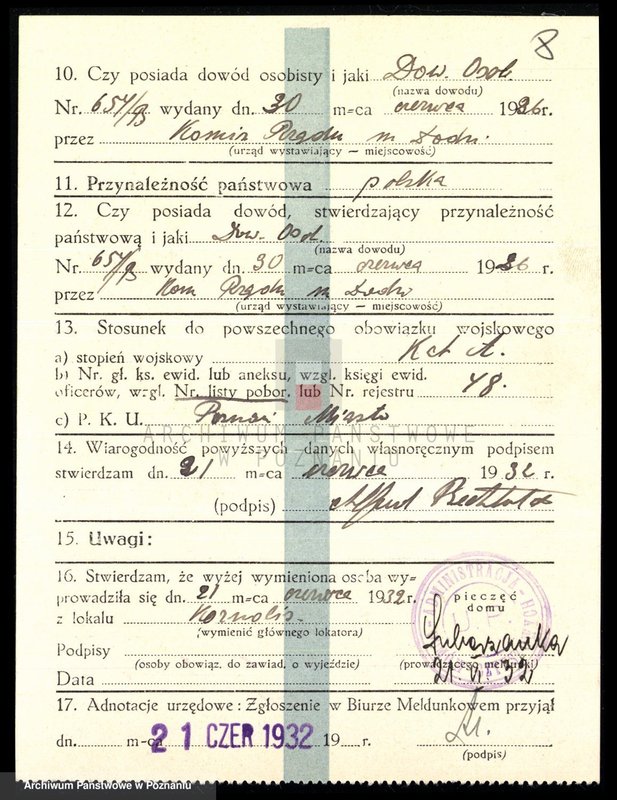 8
10. Czy posiada dowód osobisty i jaki Dow. Osob.
(nazwa dowodu)
Nr. 654/93 wydany dn. 30 m=ca czerwca 1926 r.
przez Komis Rządu m Łodzi.
(urząd wystawiający — miejscowość)
11. Przynależność państwowa polska
12. Czy posiada dowód, stwierdzający przynależność
państwową i jaki Dow. Osob.
(nazwa dowodu)
Nr. wydany dn. 30 m=ca czerwca 1926 r.
przez Kom Rządu m Łodzi
(urząd wystawiający — miejscowość)
13. Stosunek do powszechnego obowiązku wojskowego
a) stopień wojskowy Kat A.
b) Nr. gł. ks. ewid. lub aneksu, wzgl. księgi ewid.
oficerów, wzgl. Nr. listy pobor. lub Nr. rejestru 48.
c) P. K. U. Poznań Miasto
ARCHIWUM PAŃSTWOWE
W POZNANIU
14. Wiarogodność powyższych danych własnoręcznym podpisem
stwierdzam dn. 21 m=ca czerwca 1932 r.
(podpis)
15. Uwagi:
16. Stwierdzam, że wyżej wymieniona osoba wy=
prowadziła się dn. 21 m=ca czerwca 1932 r.
z lokalu
(wymienić głównego lokatora)
pieczęć
domu
Podpisy
(osoby obowiąz. do zawiad. o wyjeździe) (prowadzącego meldunki)
Data 21. VI. 32
17. Adnotacje urzędowe: Zgłoszenie w Biurze Meldunkowem przyjął
dn. m=ca 21 CZER 1932 19 r.
(podpis)
Archiwum Państwowe w Poznaniu